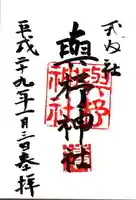 式内社
與杼神社
與杼神社
平成二十九年一月三日奉拝